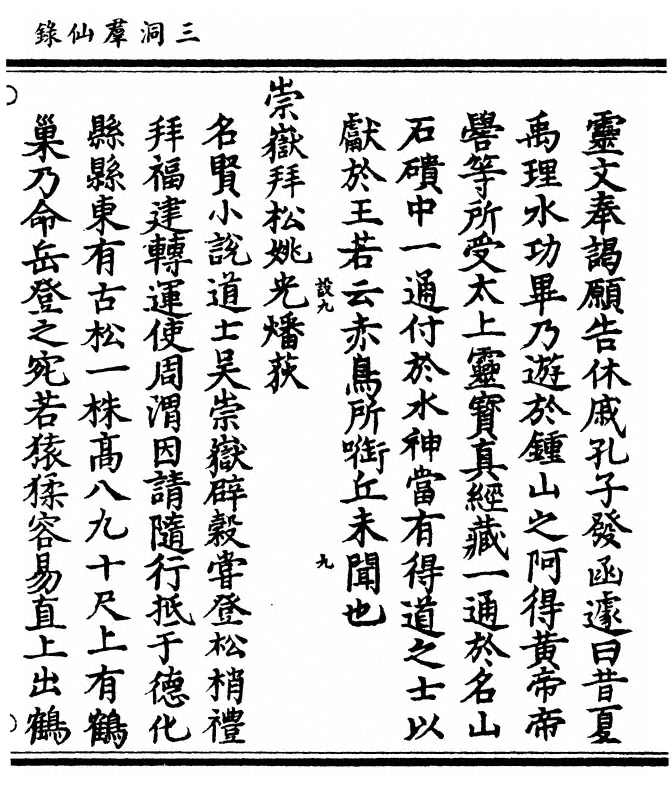 三洞羣仙錄
靈文奉謁願告休戚孔子發函遽曰昔夏
禹理水功畢乃遊於鍾山之阿得黃帝帝
嚳等所受太上靈寶真經藏一通於名山
石磧中一通付於水神當有得道之士以
獻於王若云赤鳥所㘅丘未聞也
設九
九
崇嶽拜松姚光燔荻
名賢小說道士吳崇嶽辟穀嘗登松梢禮
拜福建轉運使周渭因請隨行抵于德化
縣縣東有古松一株高八九十尺上有鶴
巢乃命岳登之宛若猿猱容易直上出鶴